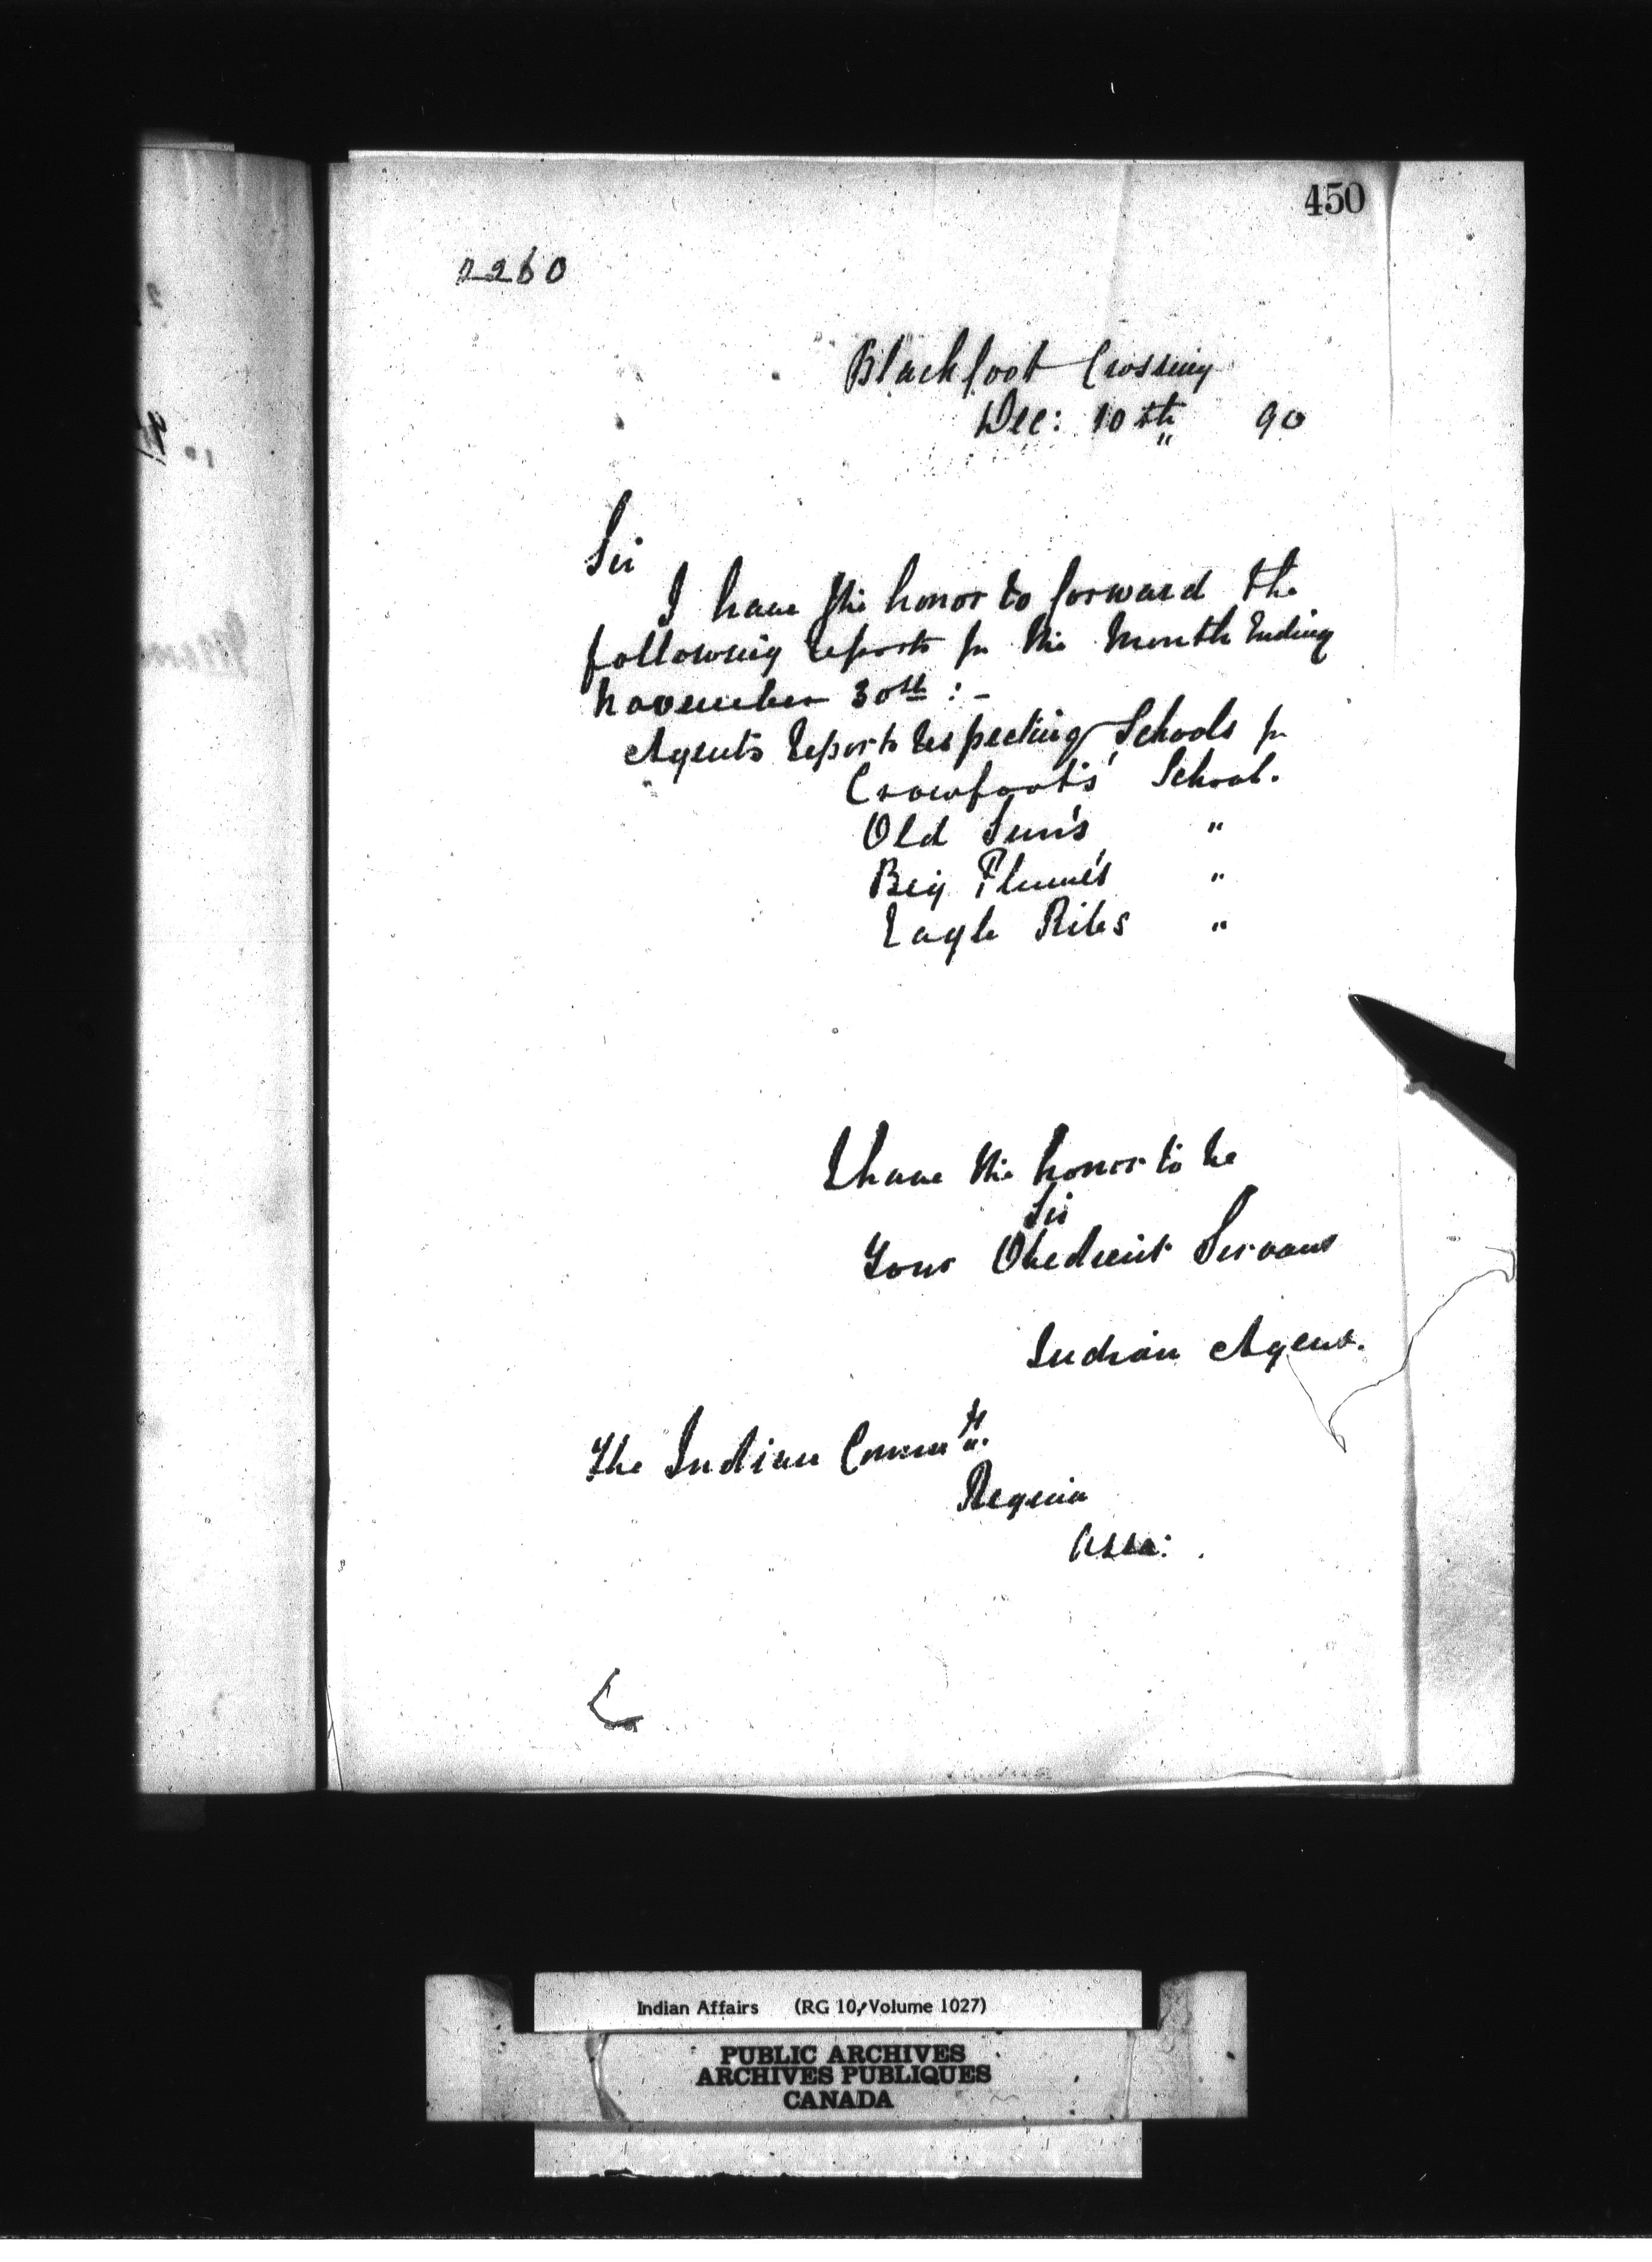 450
2260
Blackfoot Crossing
Dec: 10th 90
Sir
I have the honor to forward the
following reports for the Month Ending
November 30th : -
Agents Reports Respecting Schools for
Crowfoot's School.
Old Sun's "
Big Plume's "
Eagle Ribs "
I have the honor to be
Sir
Your Obedient Servant
Indian Agent.
The Indian Commr.
Regina
Assa:
Indian Affairs (RG 10, Volume 1027)
PUBLIC ARCHIVES
ARCHIVES PUBLIQUES
CANADA